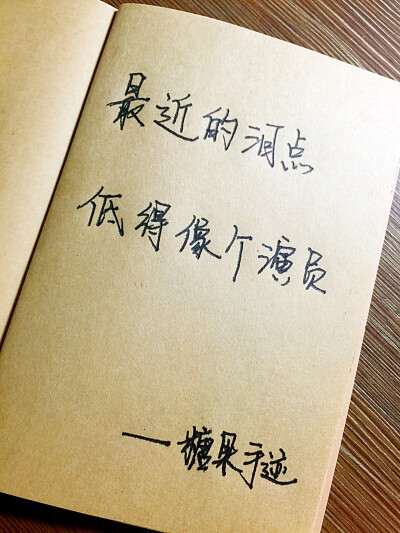 最近的泪点
低得像个演员
一糖果手迹